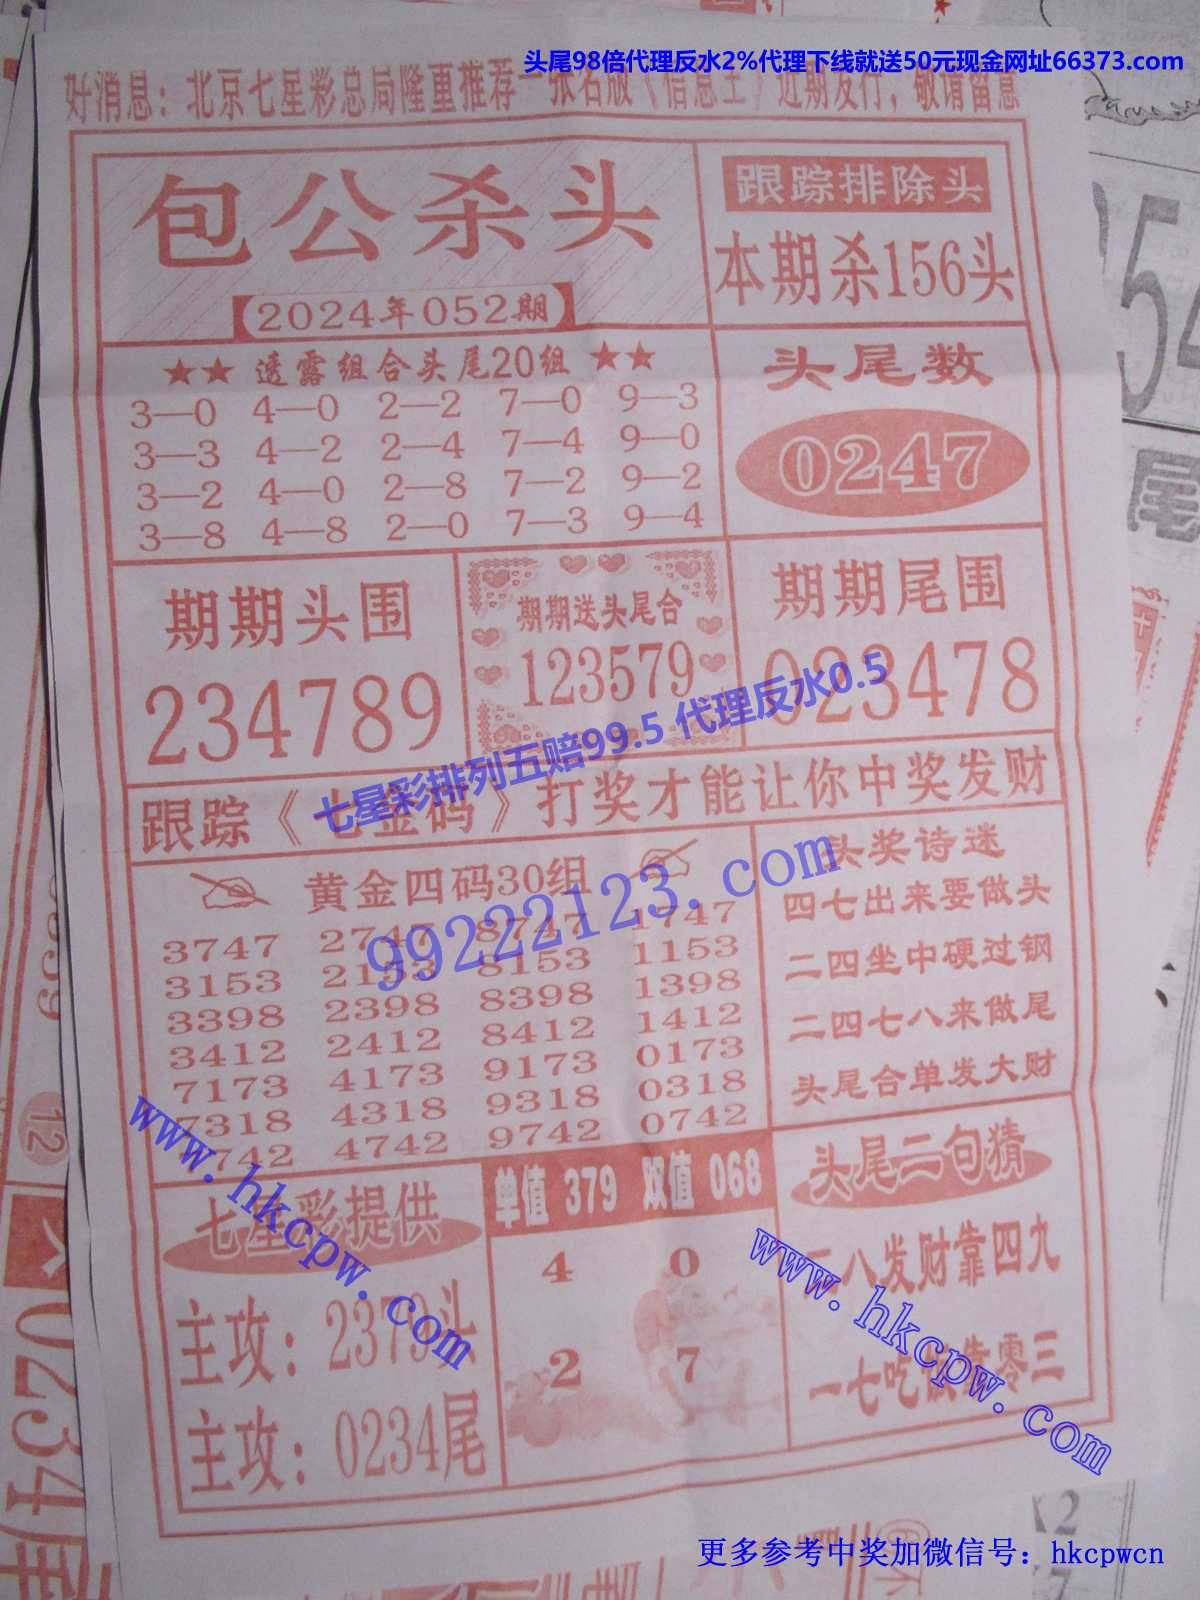 头尾98倍代理反水2%代理下线就送50元现金网址66373.com
好消息：北京七星彩总局隆重推荐一张名版《信息王》近期发行，敬请留意
包公杀头
【2024年052期】
跟踪排除头
本期杀156头
★★ 透露组合头尾20组 ★★
3—0 4—0 2—2 7—0 9—3
3—3 4—2 2—4 7—4 9—0
3—2 4—0 2—8 7—2 9—2
3—8 4—8 2—0 7—3 9—4
头尾数
0247
期期头围
234789
期期送头尾合
123579
期期尾围
023478
七星彩排列五赔99.5 代理反水0.5
跟踪《七金码》打奖才能让你中奖发财
99222123.com
黄金四码30组
3747 2747 8747 1747
3153 2153 8153 1153
3398 2398 8398 1398
3412 2412 8412 1412
7173 4173 9173 0173
7318 4318 9318 0318
742 4742 9742 0742
头奖诗迷
四七出来要做头
二四坐中硬过钢
二四七八来做尾
头尾合单发大财
www.hkcpw.com
七星彩提供
主攻：2379头
主攻：0234尾
单值 379 双值 068
4 0
2 7
头尾二句猜
八发财靠四九
一七吃饭 零三
www.hkcpw.com
更多参考中奖加微信号：hkcpwcn
12
0234尾
54
尾